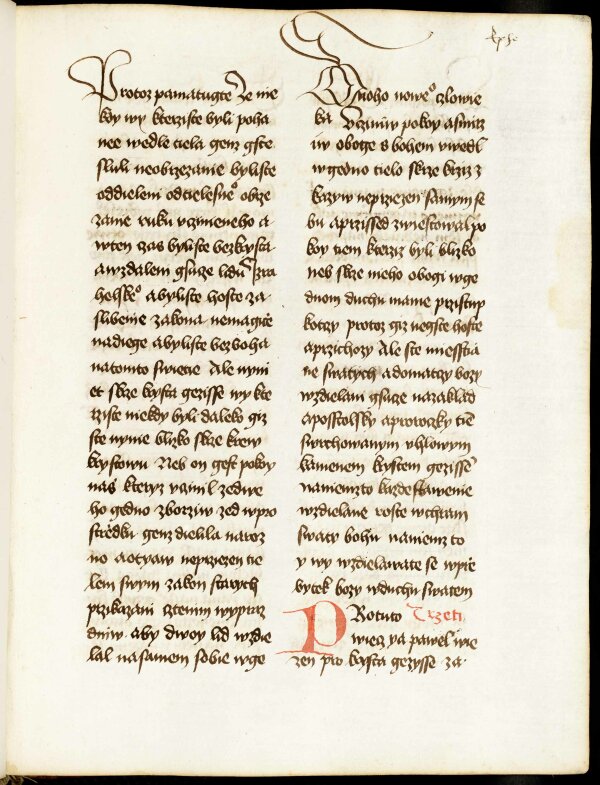 Protoz pamatugte Ze nie
kdy wy kterziste byli poha
nee wedle tiela genz gste
sluli neobrzezanie byliste
oddieleni odtielesneo obrze
zanie ruku vczinieneho a
wten czas byliste bezkrysta
awzdaleni gsuze lidu Izra
helskeo abyliste hoste za
slibenie zakona nemagicze
nadiege abyliste bezboha
natomto swietie Ale nyni
et skrze krysta gezisse wy kte
rziste niekdy byli daleko giz
ste nynie blizko skrze krew
krystowu Neb on gest pokoy
nas kteryz vczinil zedwe
ho gedno zborziw zed wpro
strzedku genz dielila naroz
no aotyaw neprziezen tie
lem swym zakon starych
przikazani ztemin wypraz
dniw aby dwoy lid wzdie
lal nasamem sobie wge
dnoho noweo czlowie
ka vcziniw pokoy asmirz
iw oboge s bohem wwedl
wgedno tielo skrze krziz z
kazyw neprziezen samym se
bu aprzissed zwiestowal po
koy tiem kterziz byli blizko
neb skrze nieho obogi wge
dnom duchu mame przistup
kotczy protoz giz negste hoste
aprzichozy Ale ste miesstia
ne swatych adomaczy bozy
wzdielani gsuze nazaklad
aposstolsky aproroczky tiem
swrchowanym vhlowym
kamenem krystem gezissem
naniemzto kazde stawenie
wzdielane roste wchram
swaty bohu naniemz to
y wy wzdielawate se wprie
bytek bozy wduchu swatem
PRotuto Trzeti
wiecz ya pawel wie
zen pro krysta gezysse za